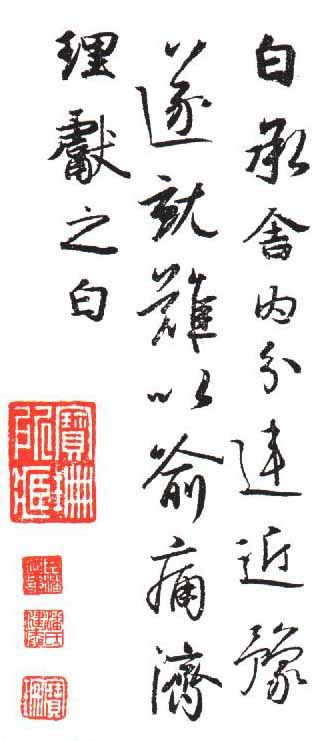 白承舍內分違近豫
遂就難以俞痛濟
理獻之白
寶琳